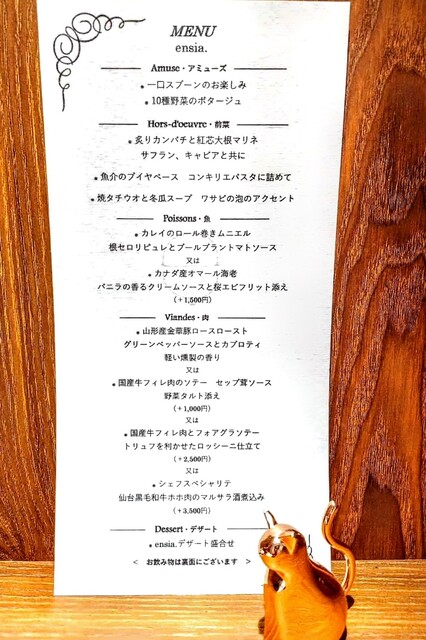 MENU
ensia.
Amuse・アミューズ
• 一口スプーンのお楽しみ
• 10種野菜のポタージュ
Hors-d'oeuvre・前菜
• 炙りカンパチと紅芯大根マリネ
サフラン、キャビアと共に
• 魚介のブイヤベース コンキリエパスタに詰めて
• 焼タチウオと冬瓜スープ ワサビの泡のアクセント
Poissons・魚
• カレイのロール巻きムニエル
根セロリピュレとブールブラントマトソース
又は
• カナダ産オマール海老
バニラの香るクリームソースと桜エビフリット添え
(+1,500円)
Viandes・肉
• 山形産金華豚ロースロースト
グリーンペッパーソースとカブロティ
軽い燻製の香り
又は
• 国産牛フィレ肉のソテー セップ茸ソース
野菜タルト添え
(+1,000円)
又は
• 国産牛フィレ肉とフォアグラソテー
トリュフを利かせたロッシーニ仕立て
(+2,500円)
又は
• シェフスペシャリテ
仙台黒毛和牛ホホ肉のマルサラ酒煮込み
(+3,500円)
Dessert・デザート
• ensia.デザート盛合せ
< お飲み物は裏面にございます >